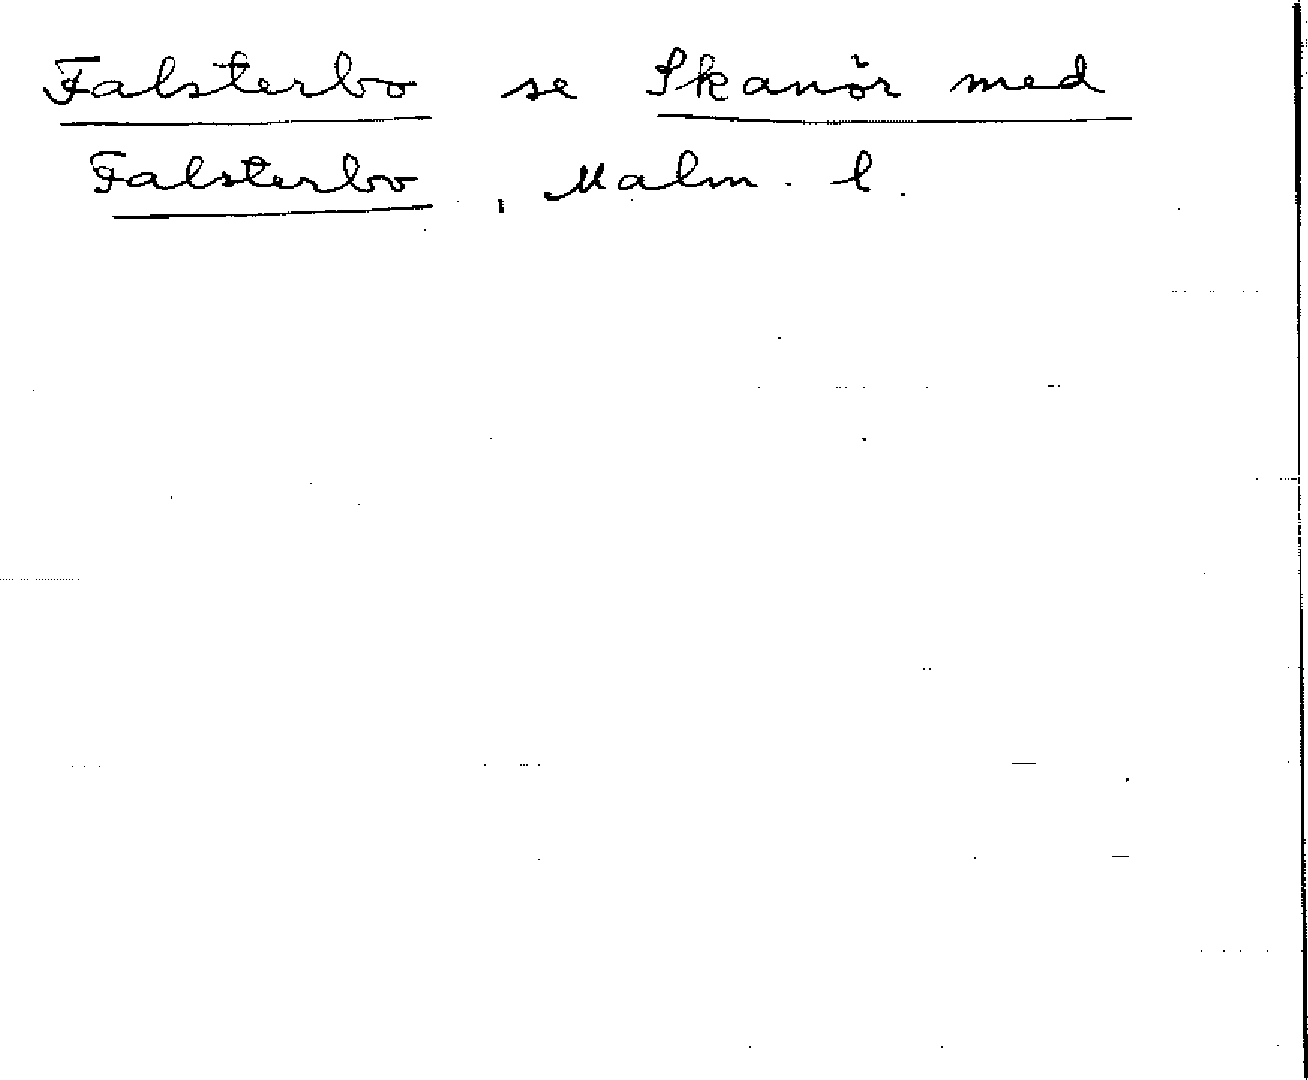 Falsterbo se Skanör med
Falsterbo, Malm. l.